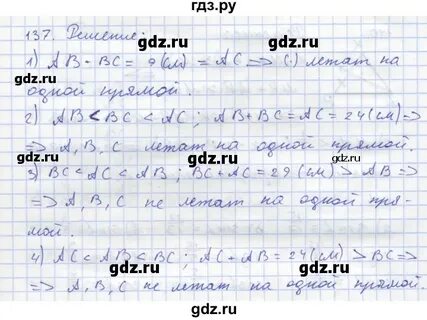 гдз.ру
137. Решение:
1) AB - BC = 9 (см) = AC => (.) летат на
одной прямой.
2) AB < BC < AC; AB + BC = AC = 24 (см) =>
=> A, B, C летат на одной прямой.
3) BC < AC < AB; BC + AC = 29 (см) > AB =>
=> A, B, C не летат на одной пря-
мой.
4) AC < AB < BC; AC + AB = 24 (см) > BC =>
=> A, B, C не летат на одной прямой.
gdz.ru gdz.ru
gdz.ru gdz.ru
gdz.ru gdz.ru
gdz.ru gdz.ru
gdz.ru gdz.ru